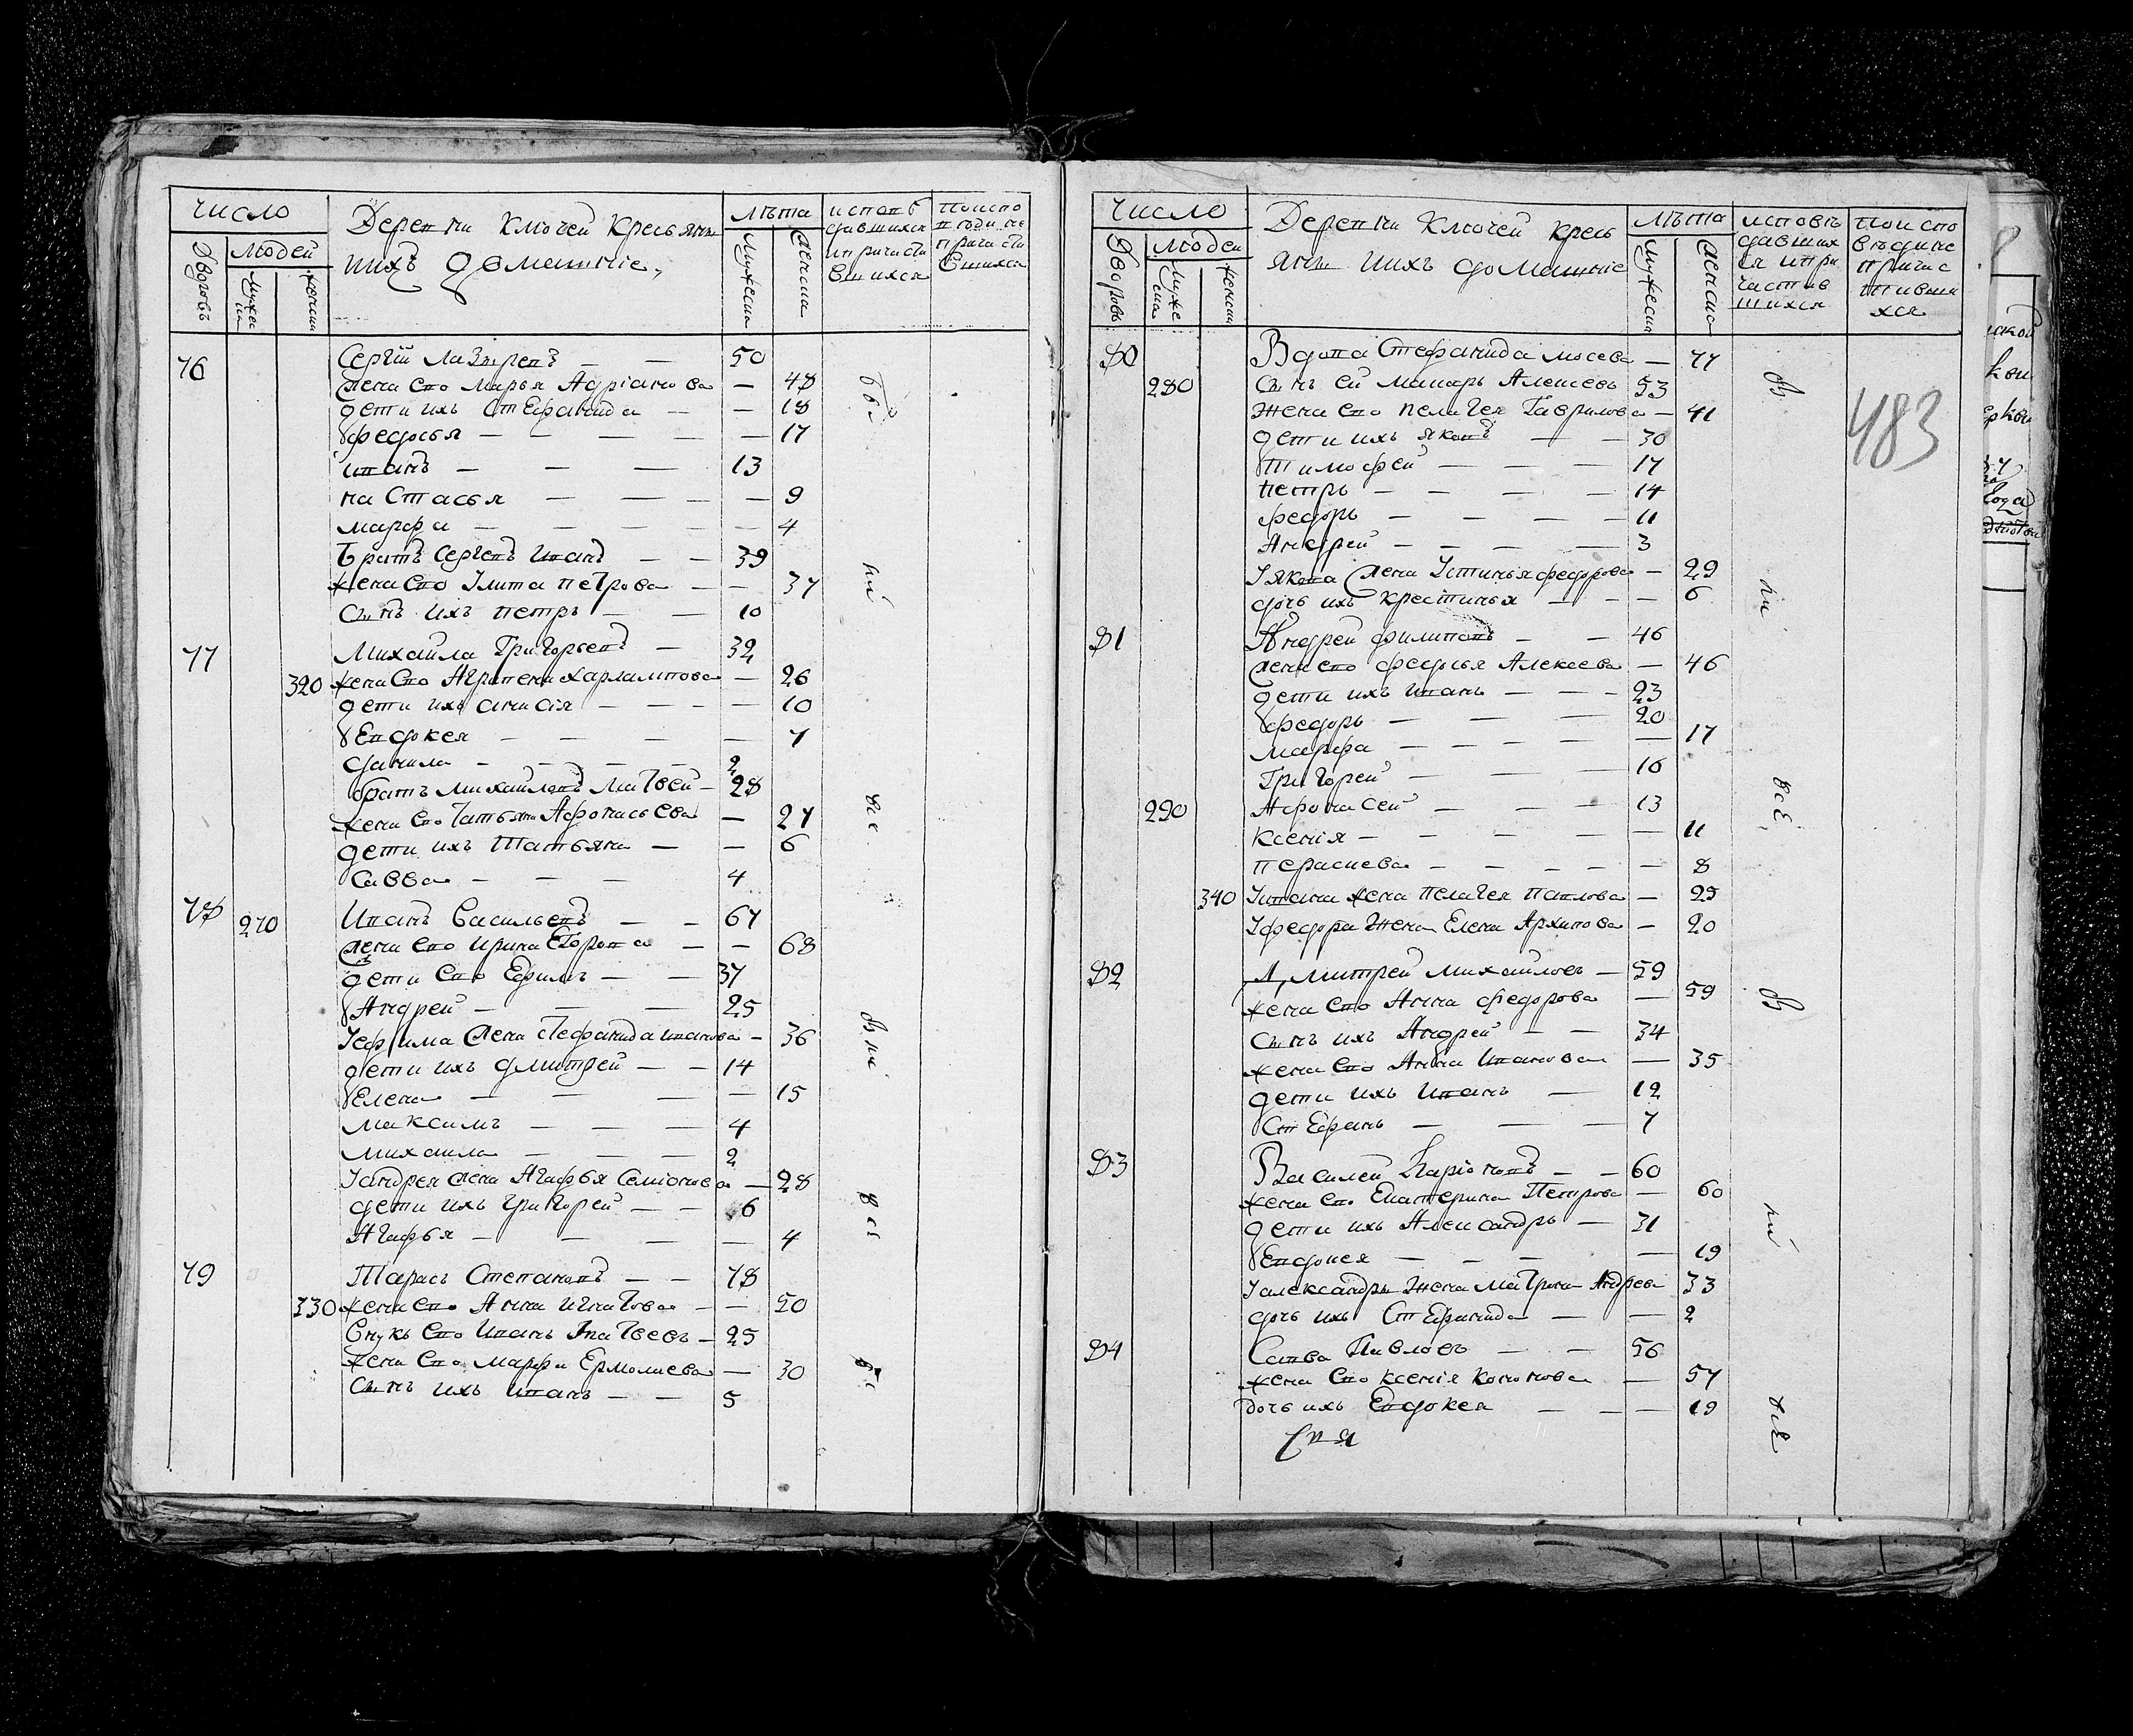 число
Дворовъ
людей
мужеска
женска
Деревни Ключей крестьяне
и ихъ домашніе,
лѣта
мужеска
женска
исповѣ
давшихся
и причасти
вшихся
по испо
вѣди не
причасти
вшихся
76 Сергѣй Лазаревъ — — 50
жена ево Марья Адріанова — 48
дети ихъ Стефанида — — 18
Федосья — — — — 17
Иванъ — — — 13
Настасья — — — — 9
Марфа — — — — 4
Братъ Сергевъ Иванъ — — 39
жена ево Улита Петрова — — 37
Сынъ ихъ Петръ — — 10
77 Михайла Григорьевъ — 32
320 жена ево Агрипена Харлампова — 26
дети ихъ Анисія — — — — 10
Евдокея — — — — 7
Данила — — — — 2
братъ Михайловъ Матвей — 28
жена ево Татьяна Афонасьева — 27
дети ихъ Татьяна — — 6
Савва — — — 4
78 270 Иванъ Васильевъ — — 67
жена ево Ирина Егорова — — 68
дети ево Ефимъ — — 37
Андрей — — — 25
У Ефима жена Стефанида Иванова — 36
дети ихъ Дмитрей — — 14
Елена — — — — 15
Максимъ — — — 4
Михаила — — — 2
У Андрея жена Агафья Семіонова — 28
дети ихъ Григорей — — 6
Агафья — — — — 4
79 Тарасъ Степановъ — — 78
330 жена ево Анна Игнатова — — 50
Внукъ ево Иванъ Матвеевъ — 25
жена ево Марфа Ермолаева — 30
Сынъ ихъ Иванъ — — 5
всѣ
число
Дворовъ
людей
мужеска
женска
Деревни Ключей кресть
яне и ихъ домашніе
лѣта
мужеска
женска
исповѣ
давших
ся и при
частив
шихся
по испо
вѣди не
причас
тивши
хся
483
80 Вдова Стефанида Мосева — 77
280 Сынъ ей Макаръ Алексеевъ 53
жена ево Пелагея Гаврилова — 41
дети ихъ Яковъ — — 30
Тимофей — — — 17
Петръ — — — — 14
Федоръ — — — — 11
Андрей — — — — 3
У Якова жена Устинья Федорова — 29
дочь ихъ Крестинья — — — 6
81 Андрей Филиповъ — — 46
жена ево Федосья Алексеева — 46
дети ихъ Иванъ — — — 23
Федоръ — — — 20
Марфа — — — — — 17
Григорей — — — 16
290 Афонасей — — — 13
Ксенія — — — — — 11
Пераскева — — — — — 8
340 У Ивана жена Пелагея Павлова — 25
У Федора жена Елена Архипова — 20
82 Дмитрей Михайловъ — 59
жена ево Анна Федорова — 59
Сынъ ихъ Андрей — — 34
жена ево Анна Иванова — 35
дети ихъ Иванъ — 12
Стефанъ — — — 7
83 Василей Ларіоновъ — — 60
жена ево Екатерина Петрова — 60
дети ихъ Александръ — 31
Евдокея — — — — 19
У Александры жена Матрона Андрева 33
дочь ихъ Стефанида — — 2
84 Савва Павловъ — — 56
жена ево Ксенія Кононова — 57
дочь ихъ Евдокеа — — — 19
всѣ